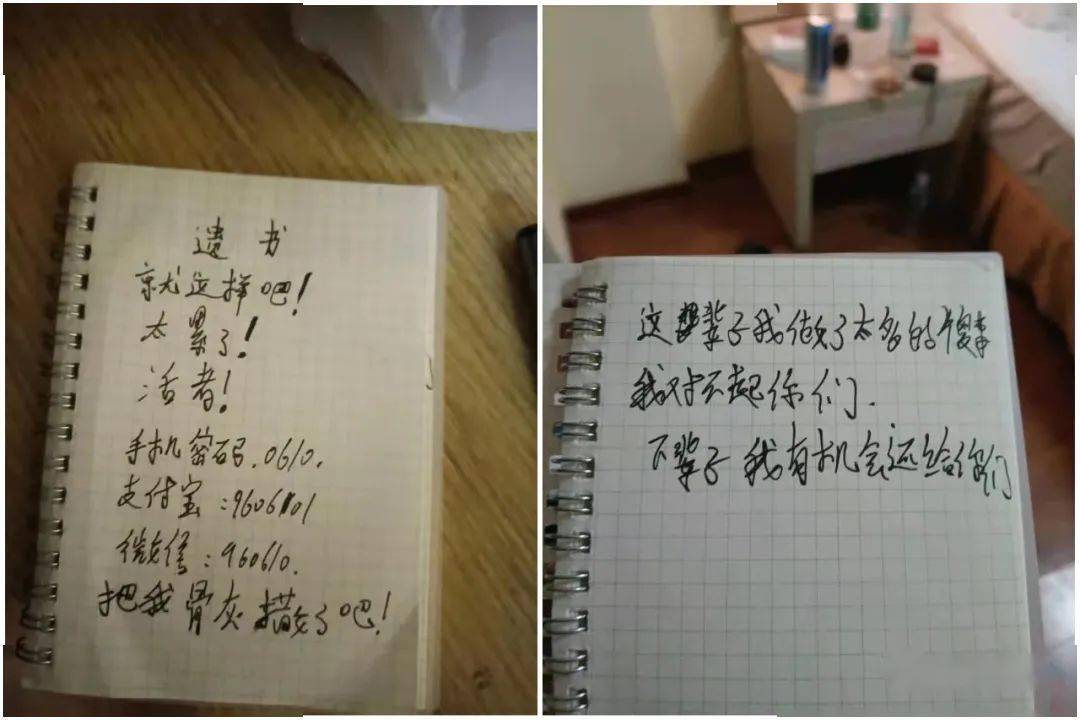 遗书
就这样吧!
太累了!
活着!
手机密码.0610.
支付宝:
微信:960610.
把我骨灰撒了吧!
这辈子我做了太多的傻事
我对不起你们.
下辈子我有机会还给你们